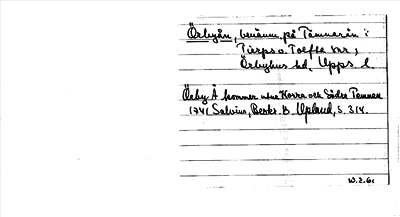 Örbyån, benämn. på Tämnarån i
Tierps o. Tolfta snr,
Örbyhus hd, Upps. l
Örby Å kommer utur Korra och Södre Temnan
1741 Salvius, Beskr. ö. Upland, s. 314.